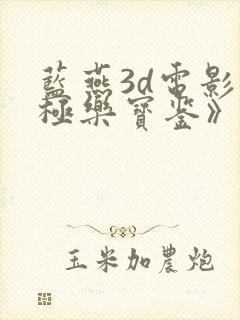 藍燕3d電影
極樂寶鉴》
玉米加農炮